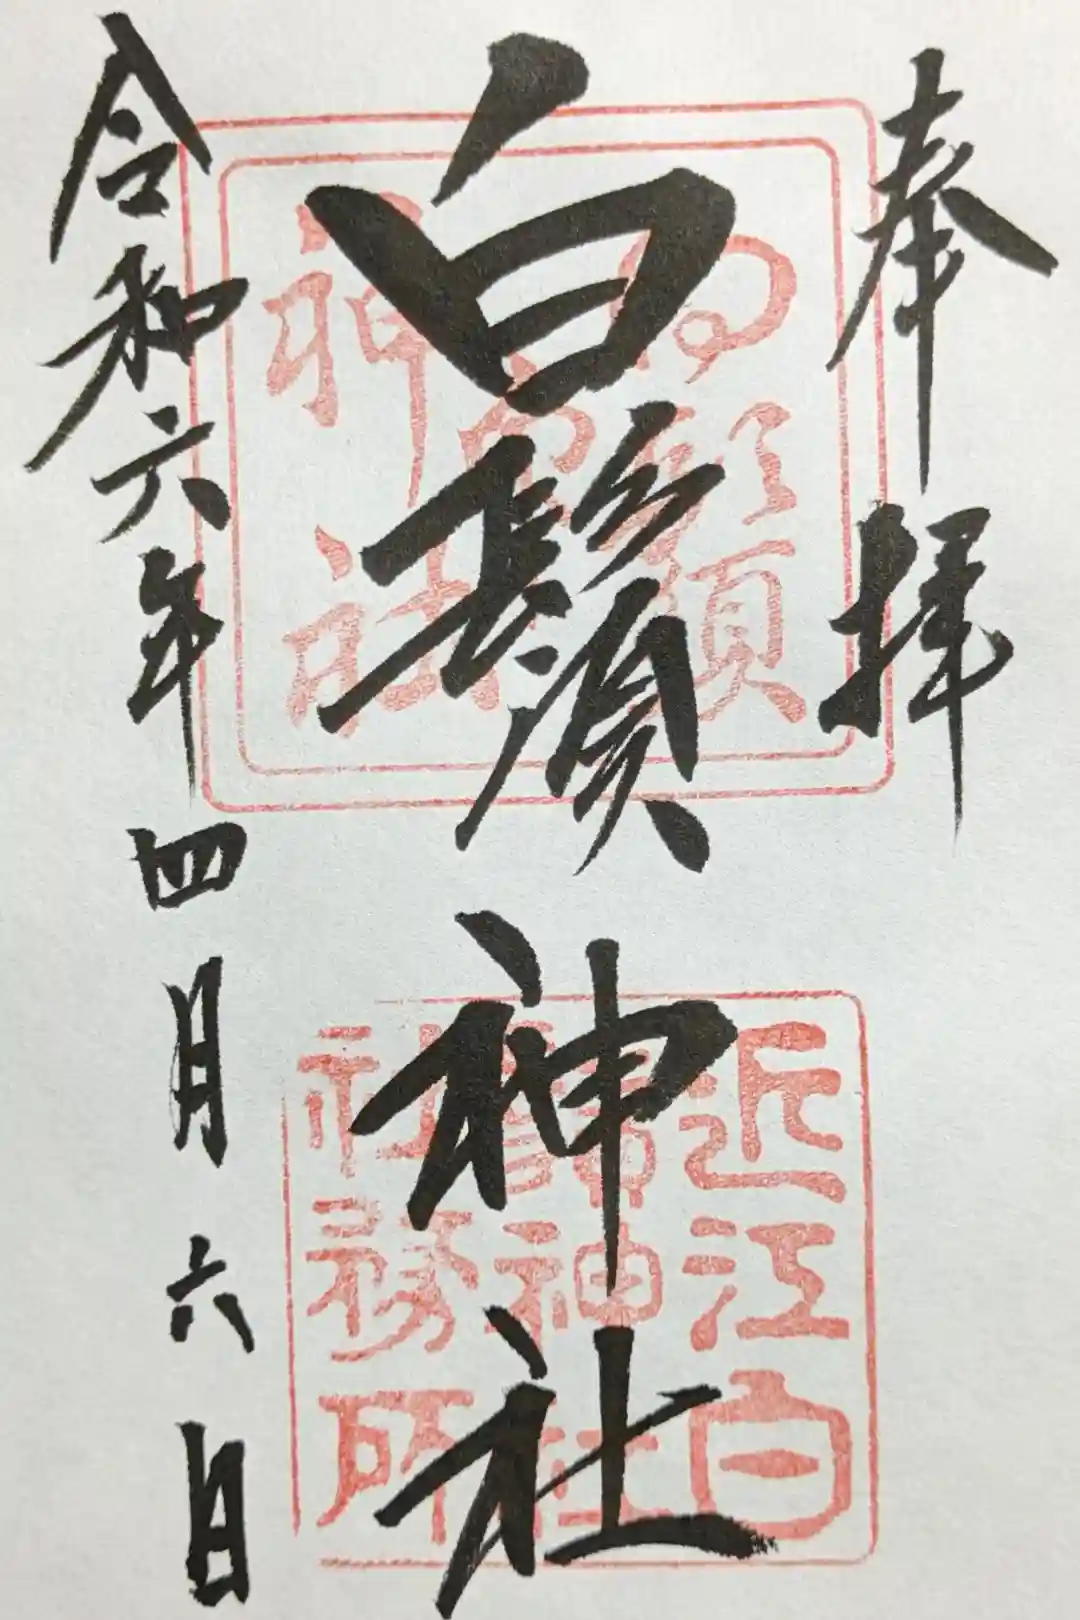 奉拝
白鬚神社
白鬚神社
近江白鬚神社社務所
令和六年四月六日